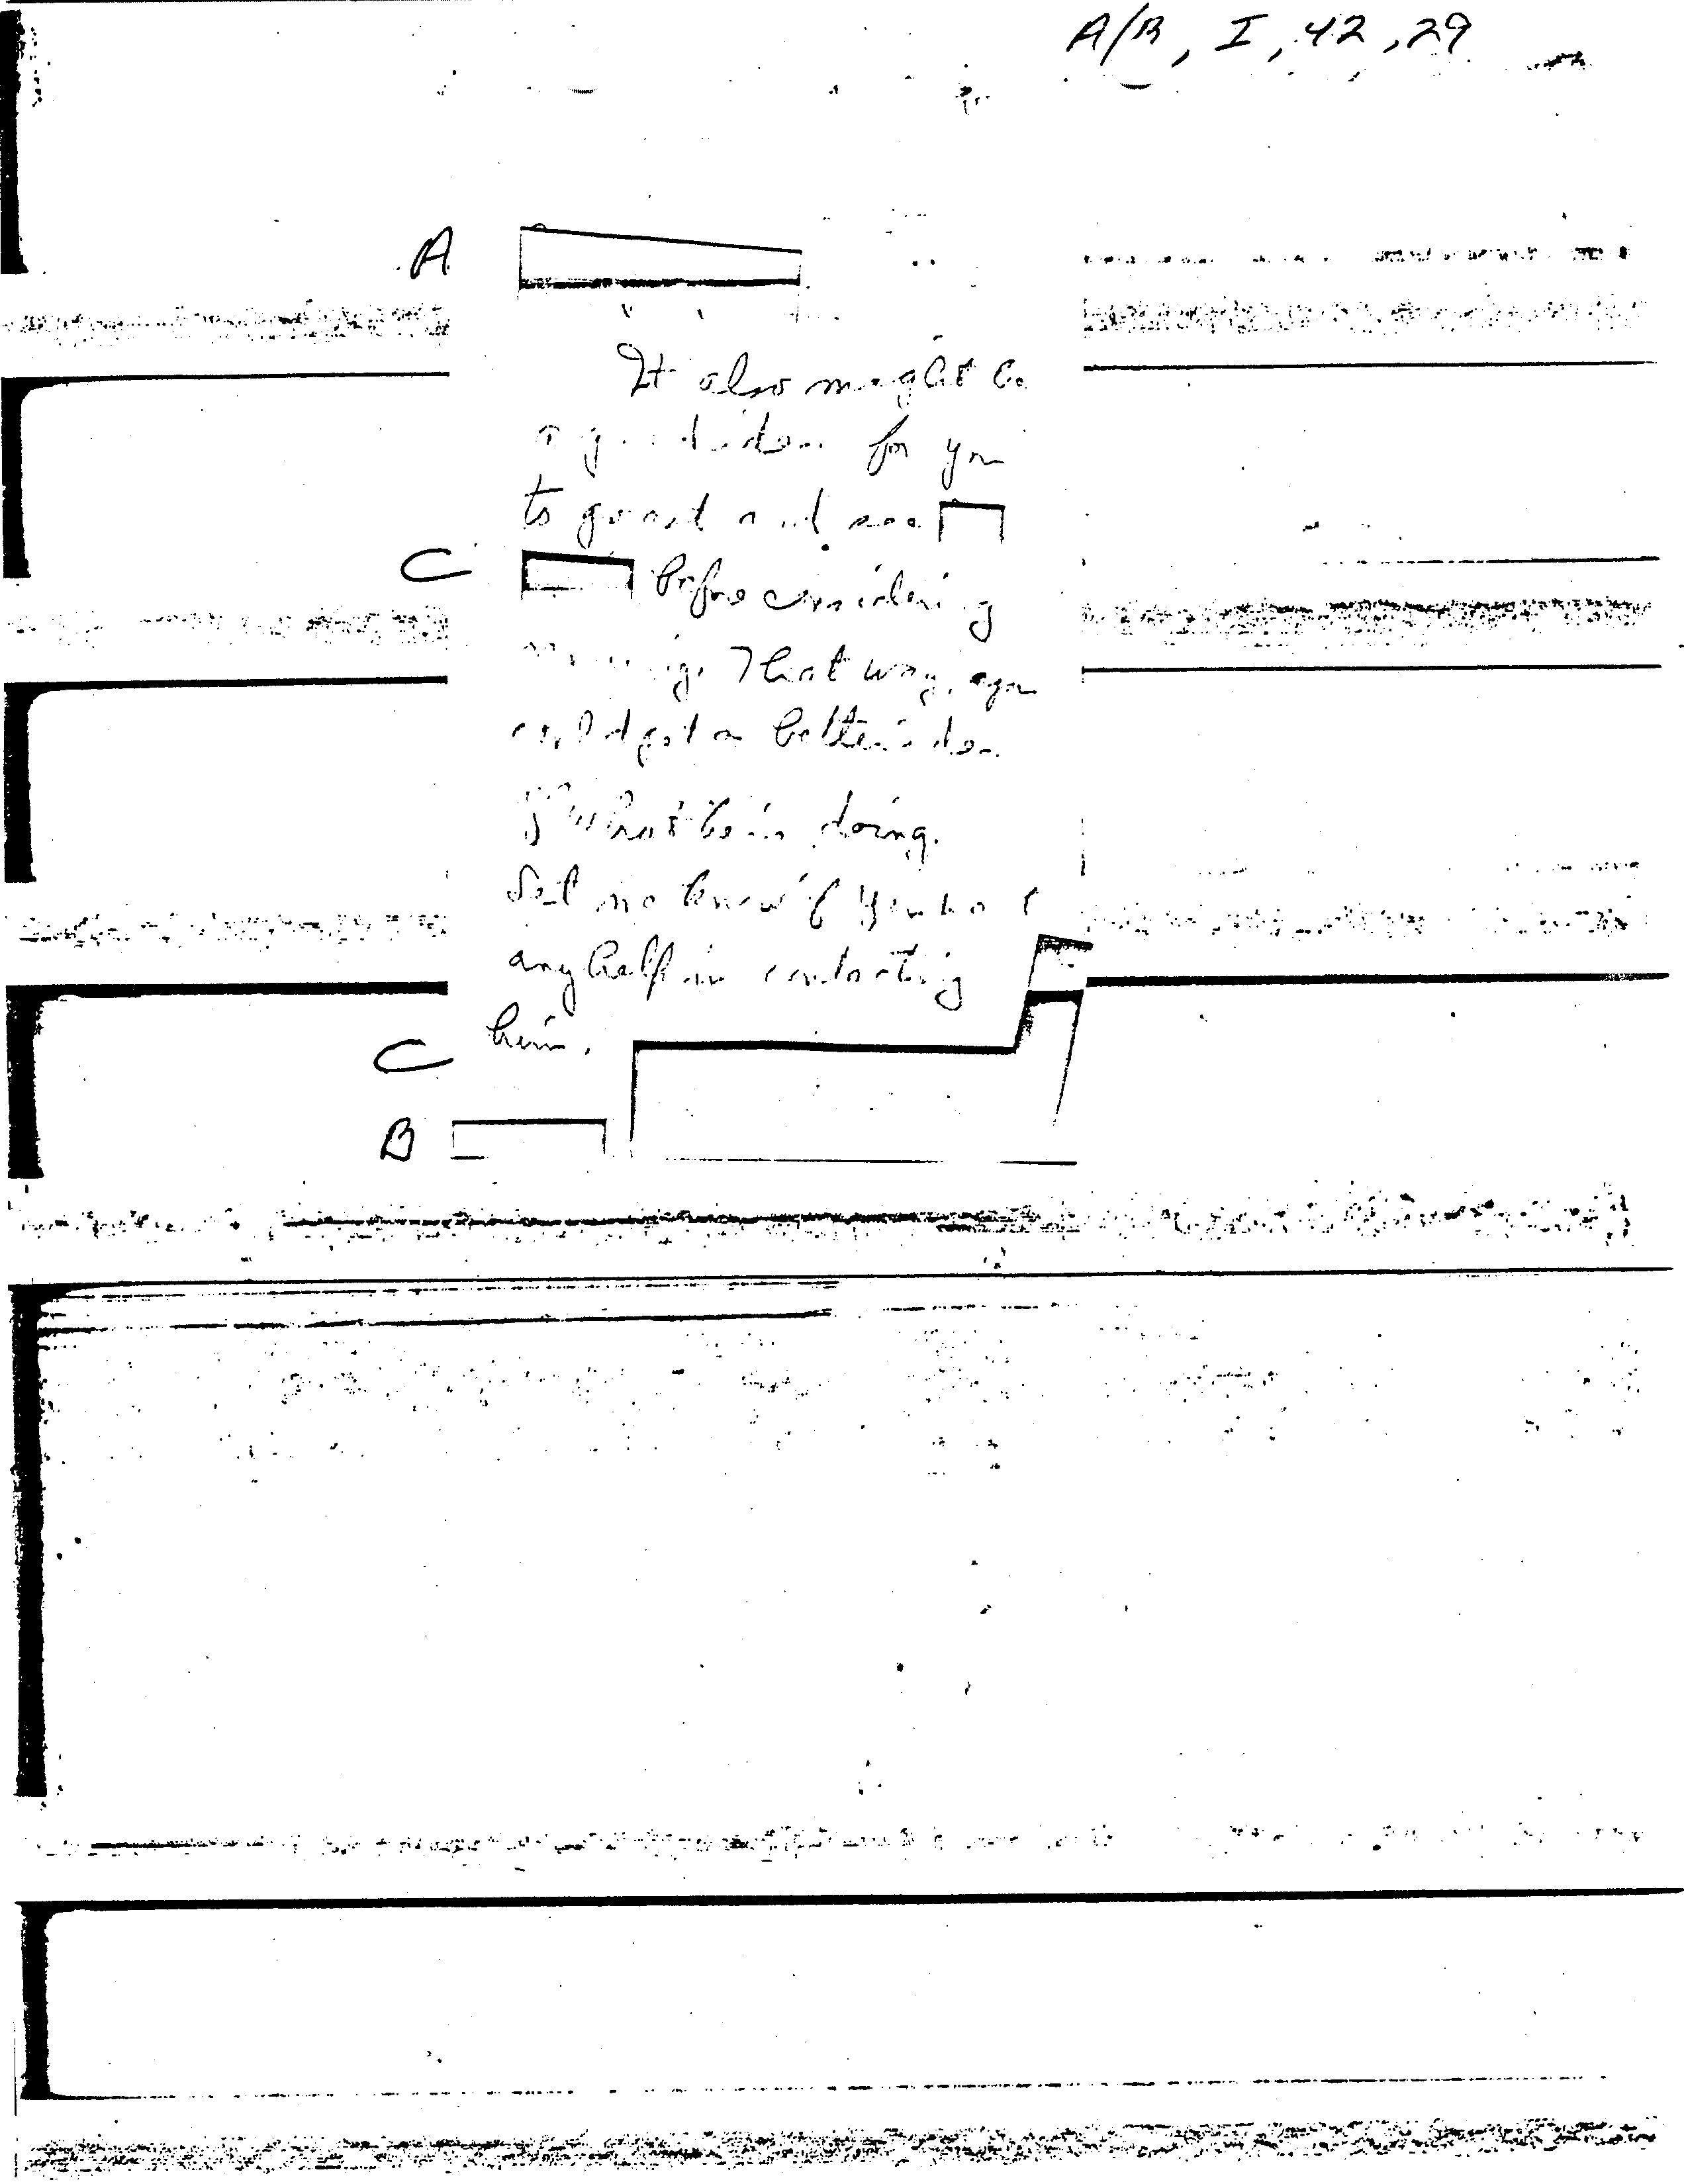 A/B, I, 42, 29
A
It also might be
a good idea for you
to go out and see
C before considering
That way, you
could get a better idea
of what he is doing.
Let me know if you
any help in contacting
him.
C
B